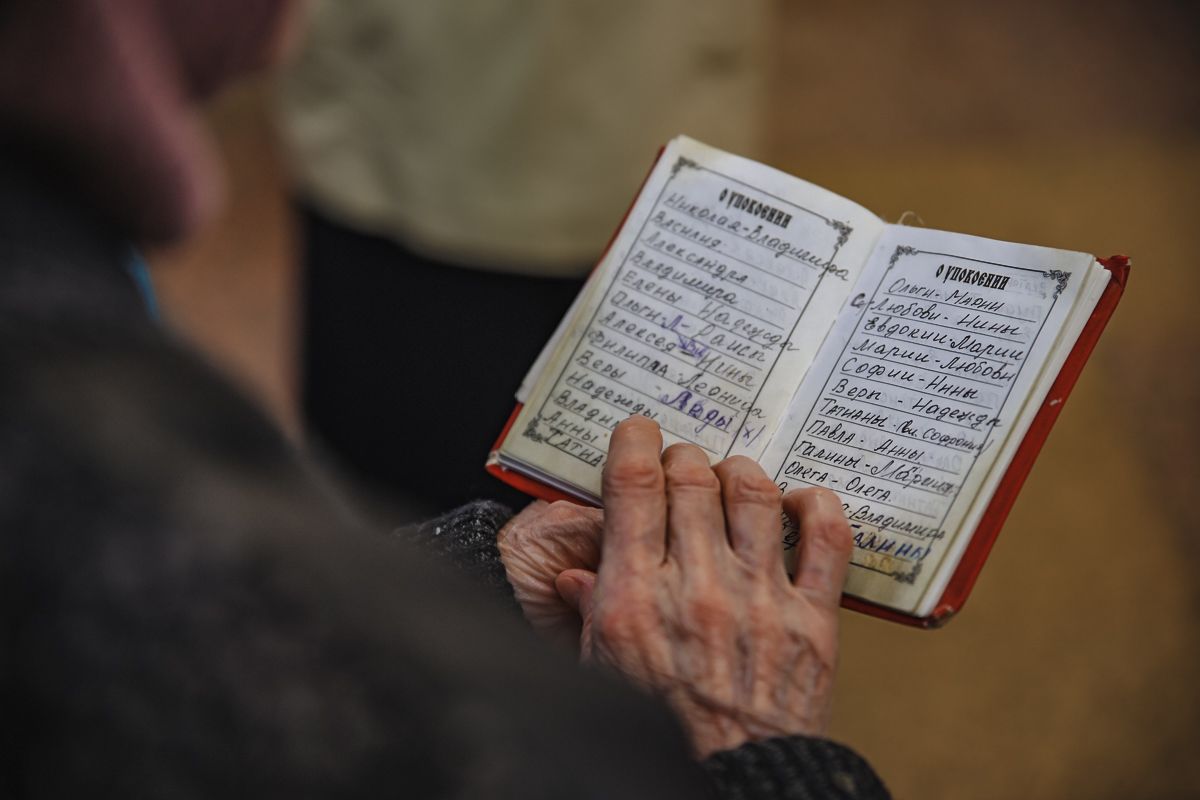 О УПОКОЕНИИ
Николая-Владимира
Василия
Александра
Владимира
Елены Надежды
Ольги-Л- Раисы
Алексея Нины
Филиппа Леонида
Веры Лиды х/
Надежды
Влади
Анны
Татиа
О УПОКОЕНИИ
Ольги-Марии
с-Любови-Нины
Евдокии-Марии
Марии-Любовь
Софии-Нины
Веры-Надежды
Татианы-
Павла-Анны
Галины-Марины
Олега-Олега
а-Владимира
Галины